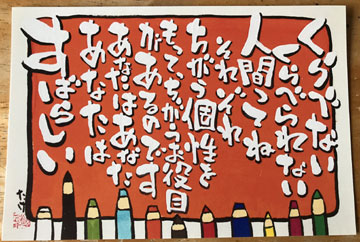 くらべない
くらべられない
人間ってね
それぞれ
ちがう個性を
もって、ちがうお役目
があるのです
あなたはあなた
あなたは
すばらしい